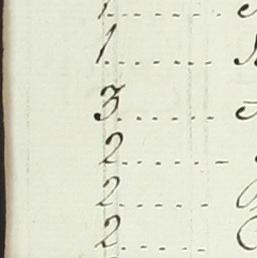 1
1
3
2
2
2